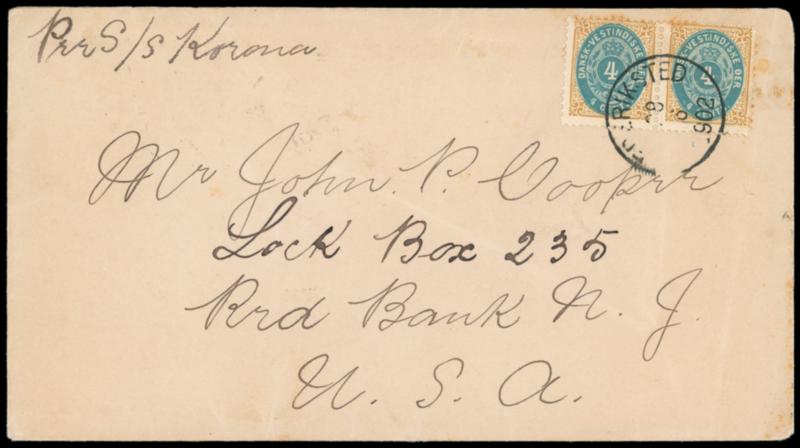 Per S/s Korona
DANSK-VESTINDISKE ØER
4
DANSK-VESTINDISKE ØER
4
28
1902
Mr John P. Cooper
Lock Box 235
Red Bank N. J.
U. S. A.